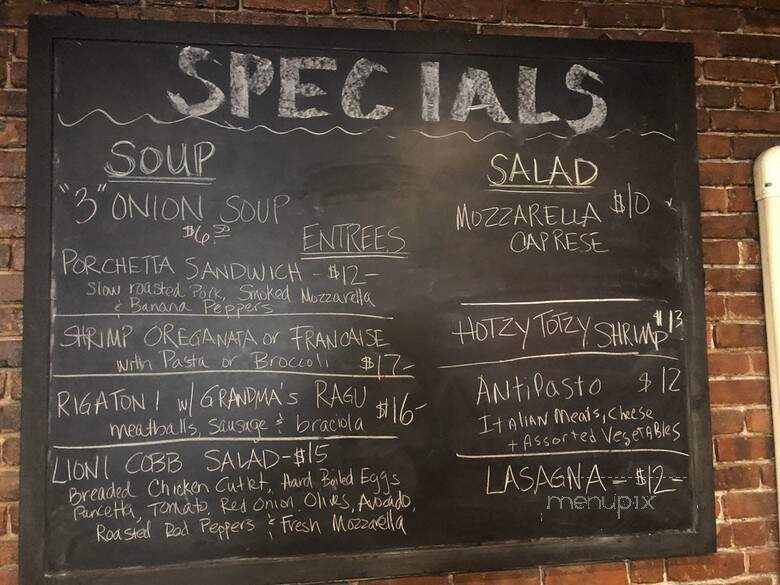 SPECIALS
SOUP
"3" ONION SOUP
$6.50
ENTREES
PORCHETTA SANDWICH - $12-
Slow roasted Pork, Smoked Mozzarella
& Banana Peppers
SHRIMP OREGANATA or FRANCAISE
with Pasta or Broccoli $17-
RIGATONI w/ GRANDMA'S RAGU $16-
meatballs, Sausage & braciola
LIONI COBB SALAD-$15
Breaded Chicken Cutlet, Hard Boiled Eggs
Pancetta, Tomato, Red Onion, Olives, Avocado,
Roasted Red Peppers & Fresh Mozzarella
SALAD
MOZZARELLA $10
CAPRESE
HOTZY TOTZY SHRIMP $13
ANTiPASTO $12
ITALIAN Meats, Cheese
+ Assorted VegeTABles
LASAGNA - $12-
menupix